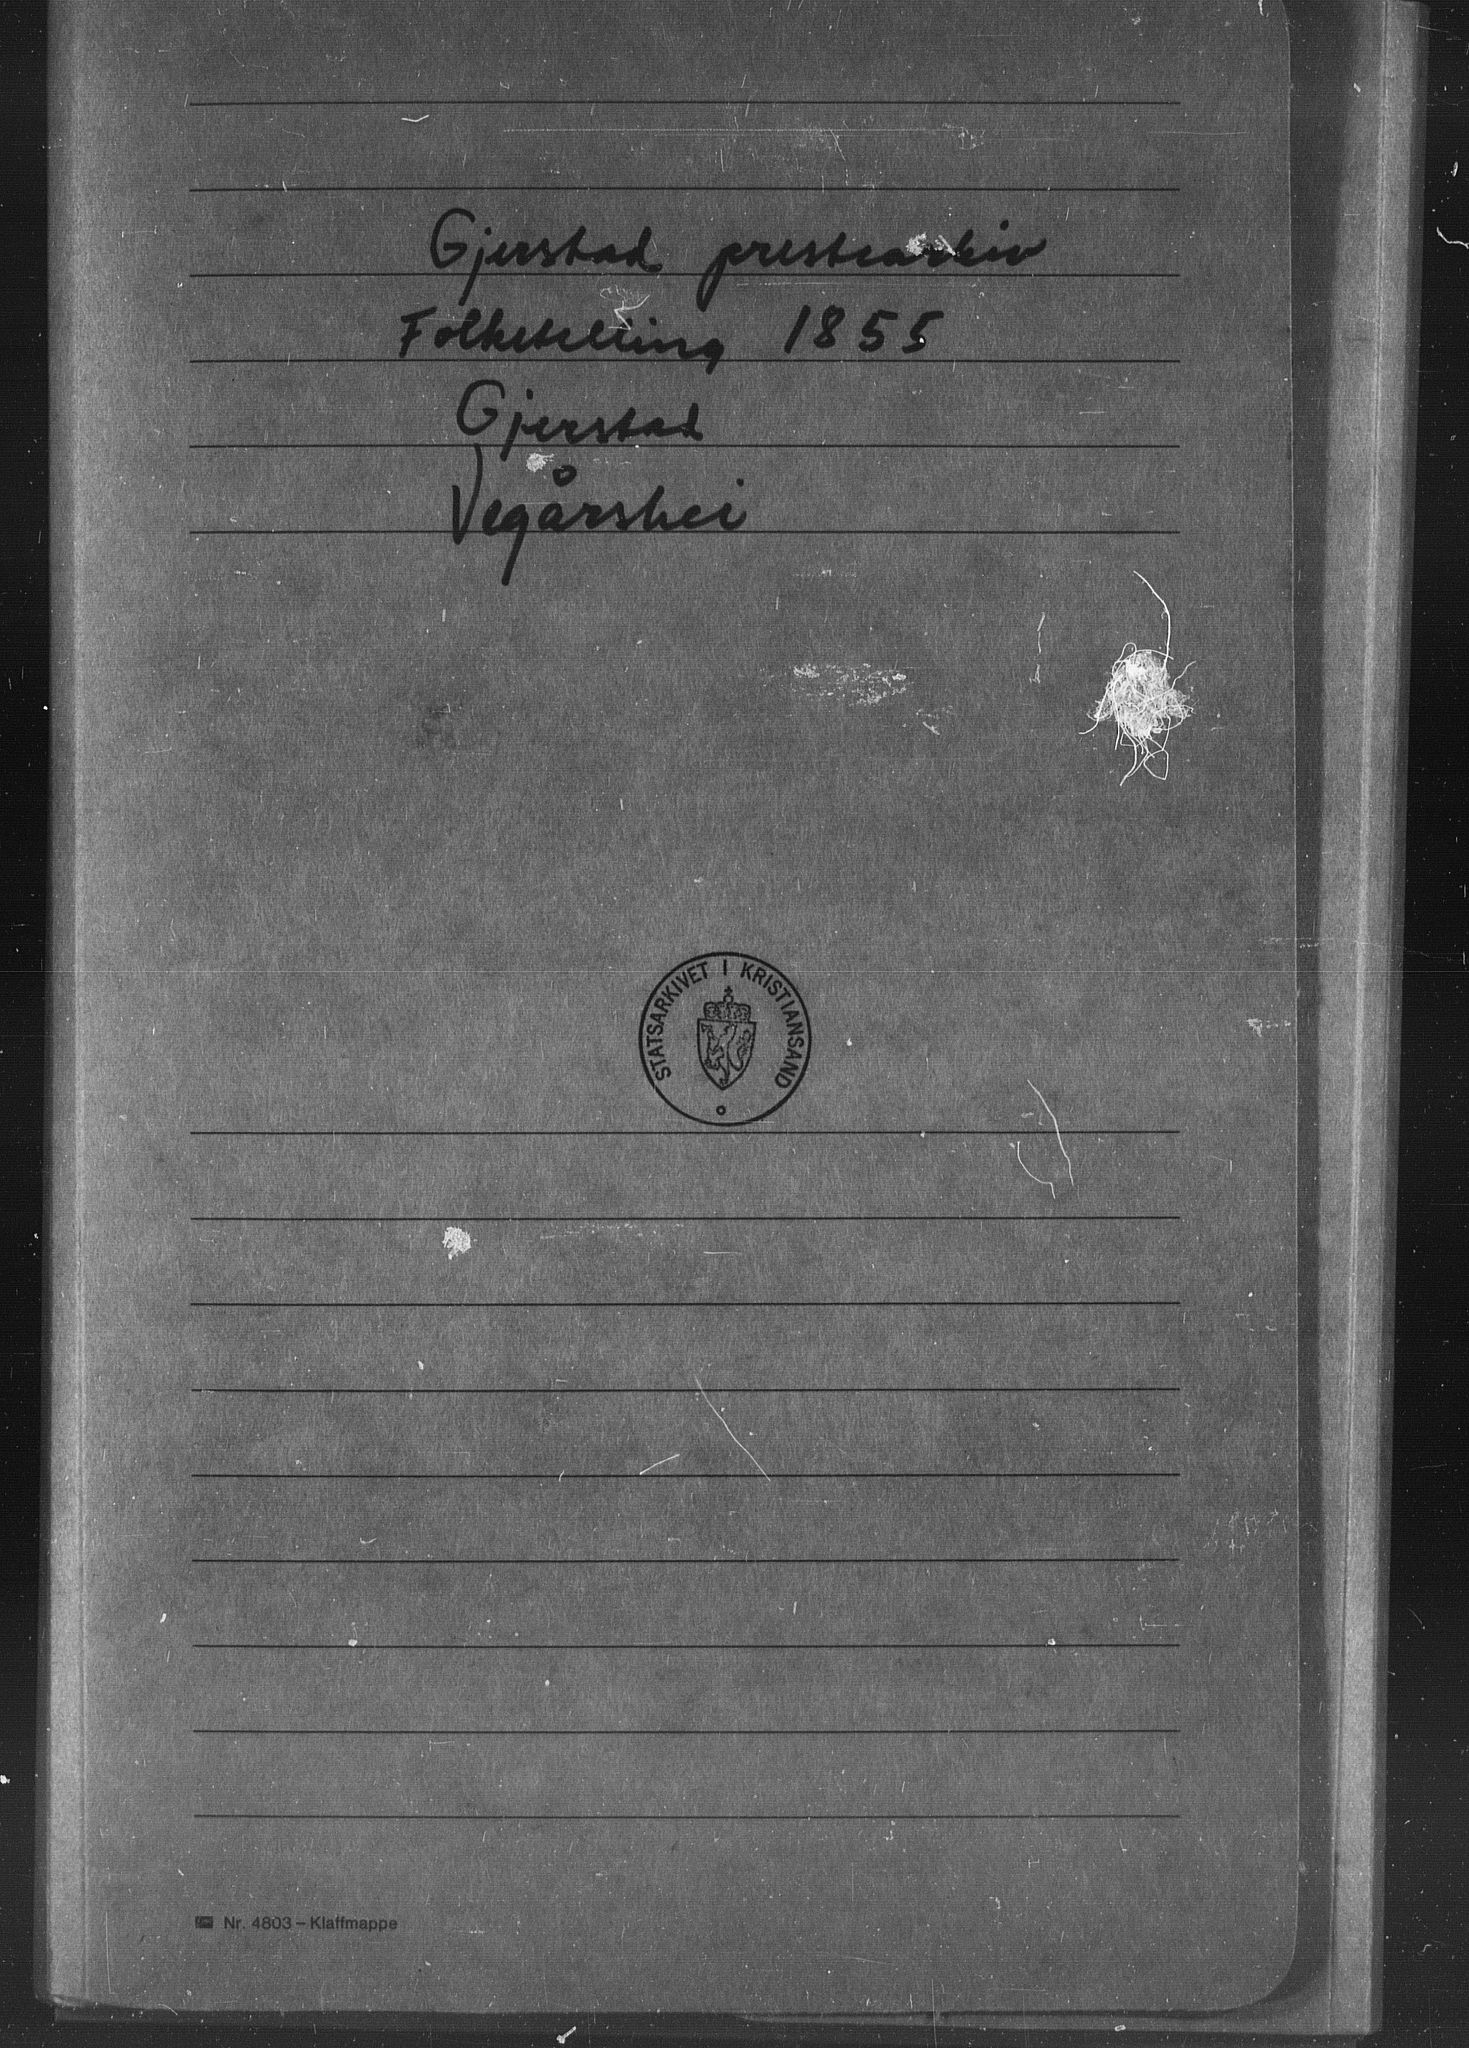 Gjerstad prestearkiv
Folketelling 1855
Gjerstad
Vegårshei
STATSARKIVET I KRISTIANSAND
Nr. 4803 – Klaffmappe